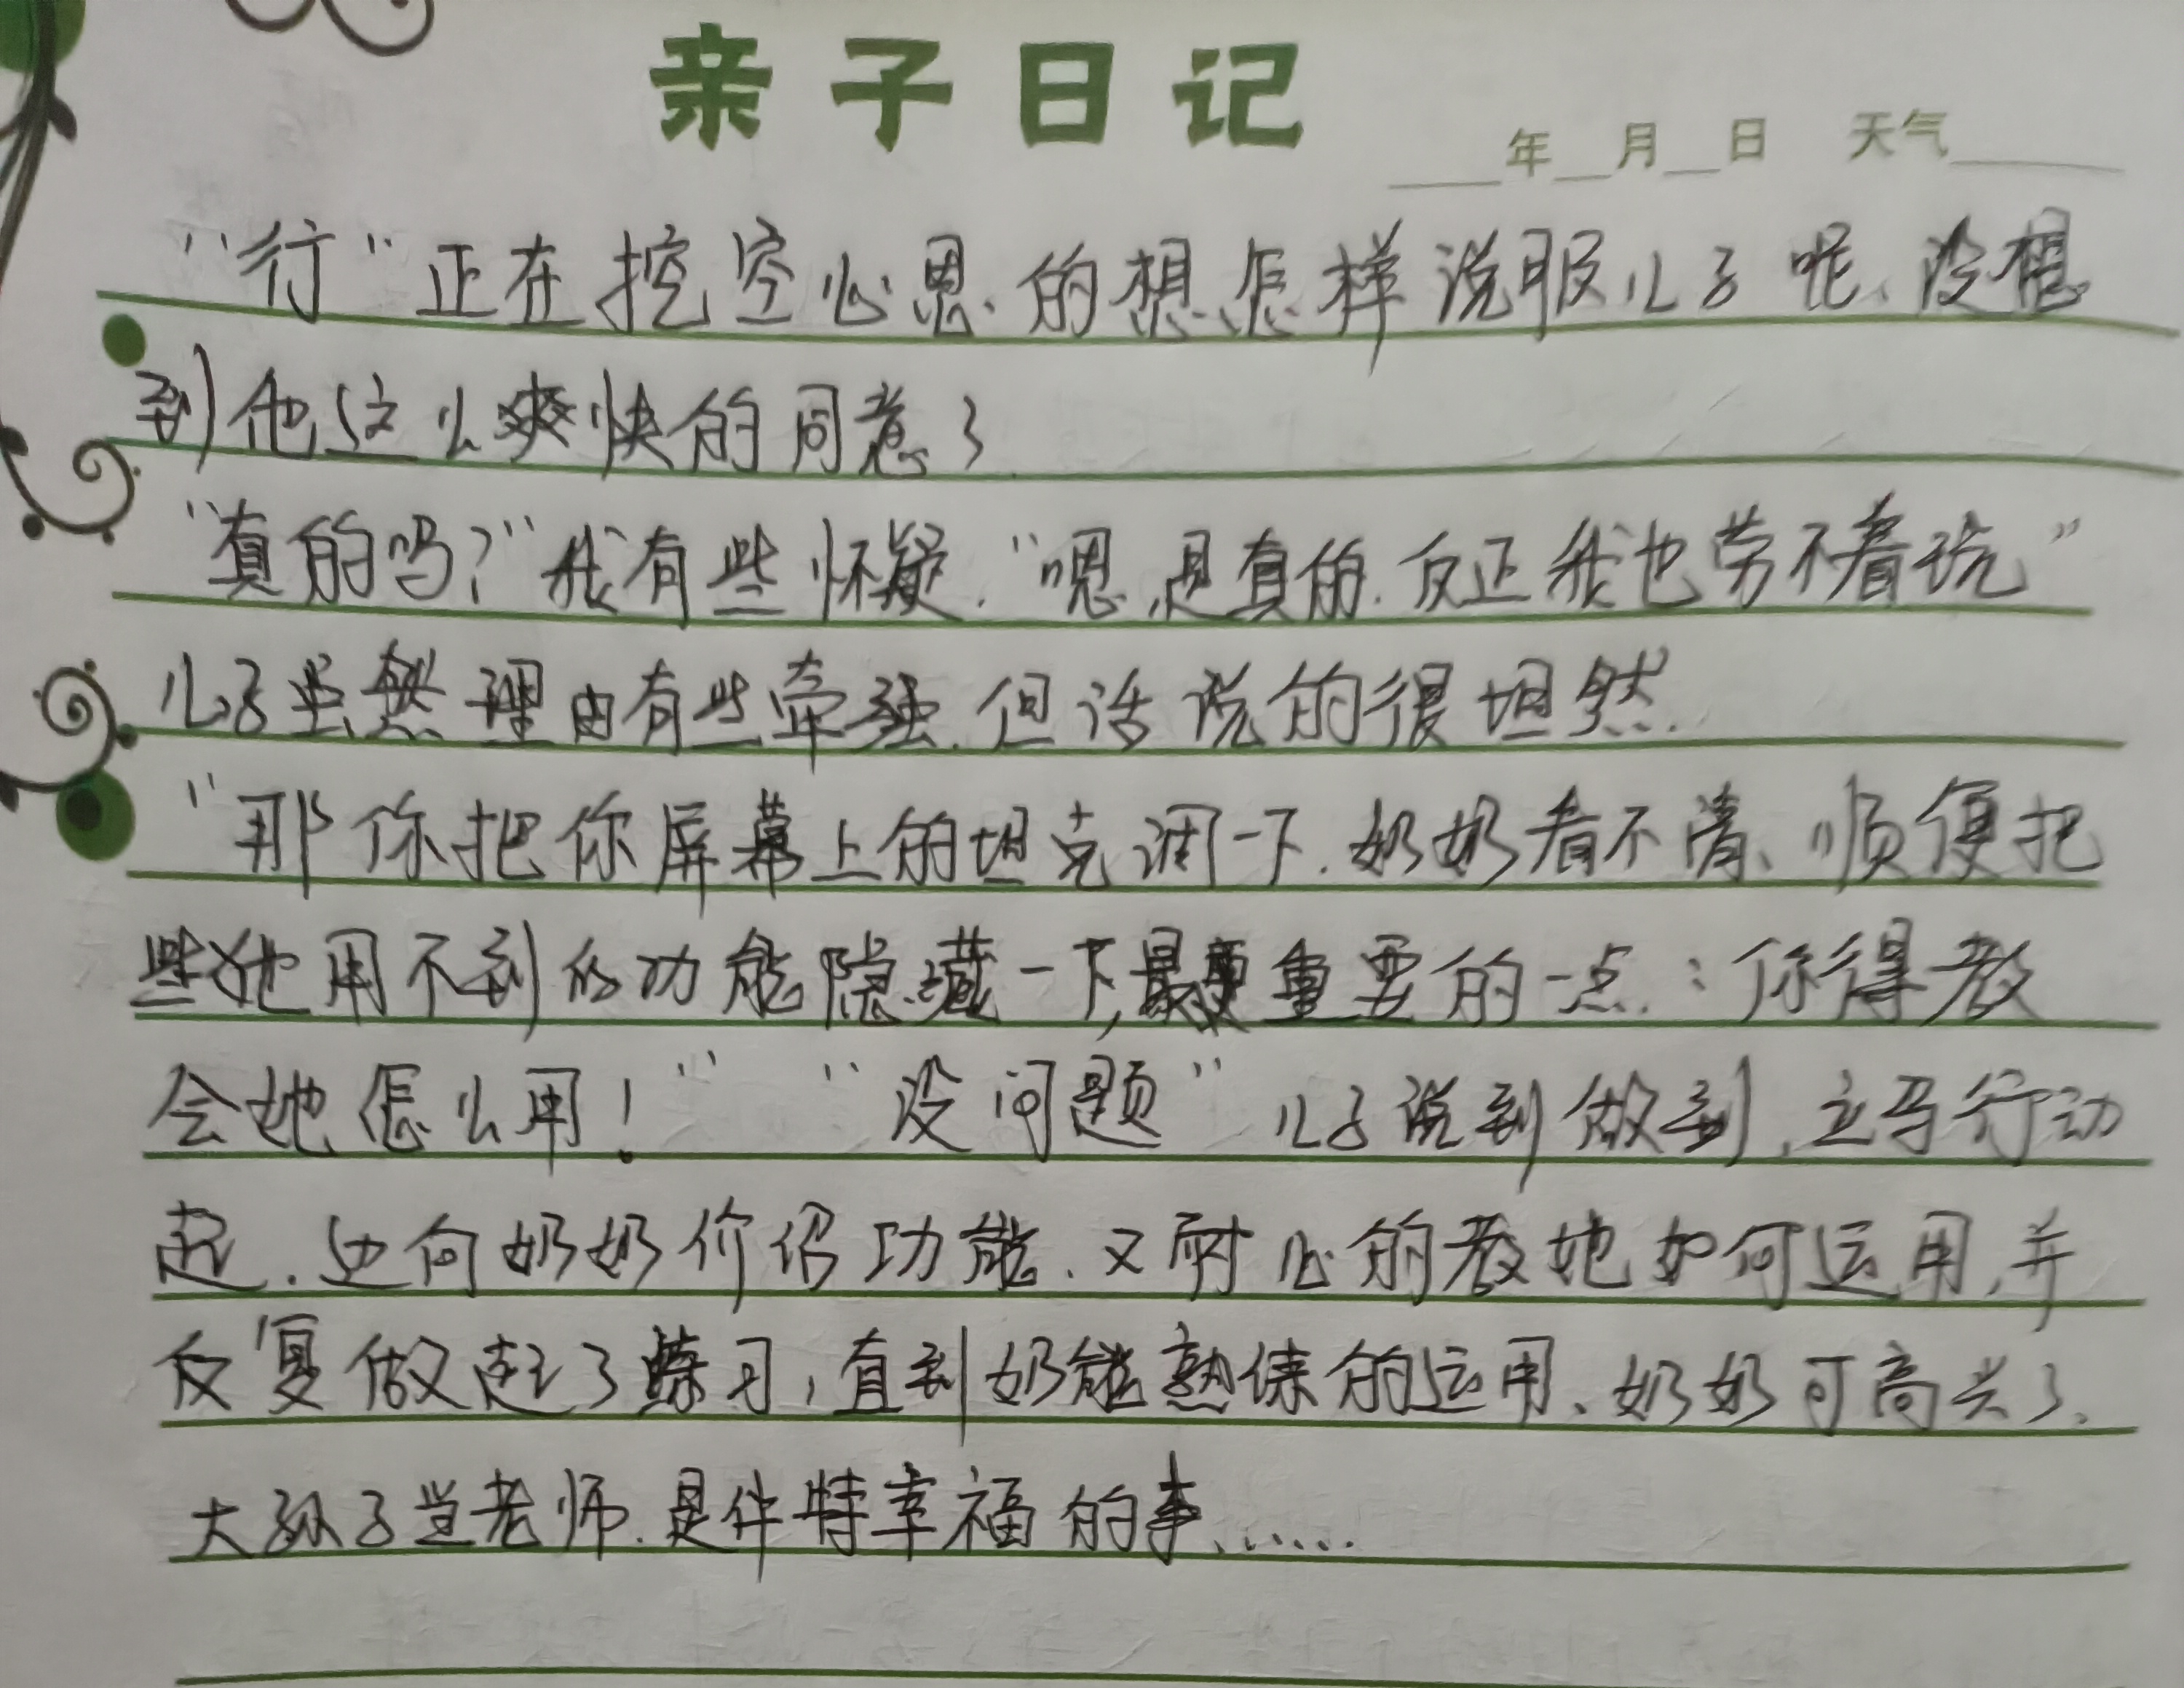 亲子日记
年 月 日 天气
“行”正在挖空心思、的想怎样说服儿子呢、没想
到他这么爽快的同意了
“真的吗?”我有些怀疑.“嗯,是真的.反正我也劳不着玩”
儿子虽然理由有些牵强.但话说的很坦然.
“那你把你屏幕上的坦克调一下.奶奶看不清、顺便把
些她用不到的功能隐藏一下,最重要的一点:你得教
会她怎么用!” “没问题”儿子说到做到,立马行动
起.边向奶奶价绍功能.又耐心的教她如何运用,并
反复做起了练习,直到奶能熟练的运用、奶奶可高兴了、
大孙子当老师.是件特幸福的事、.....